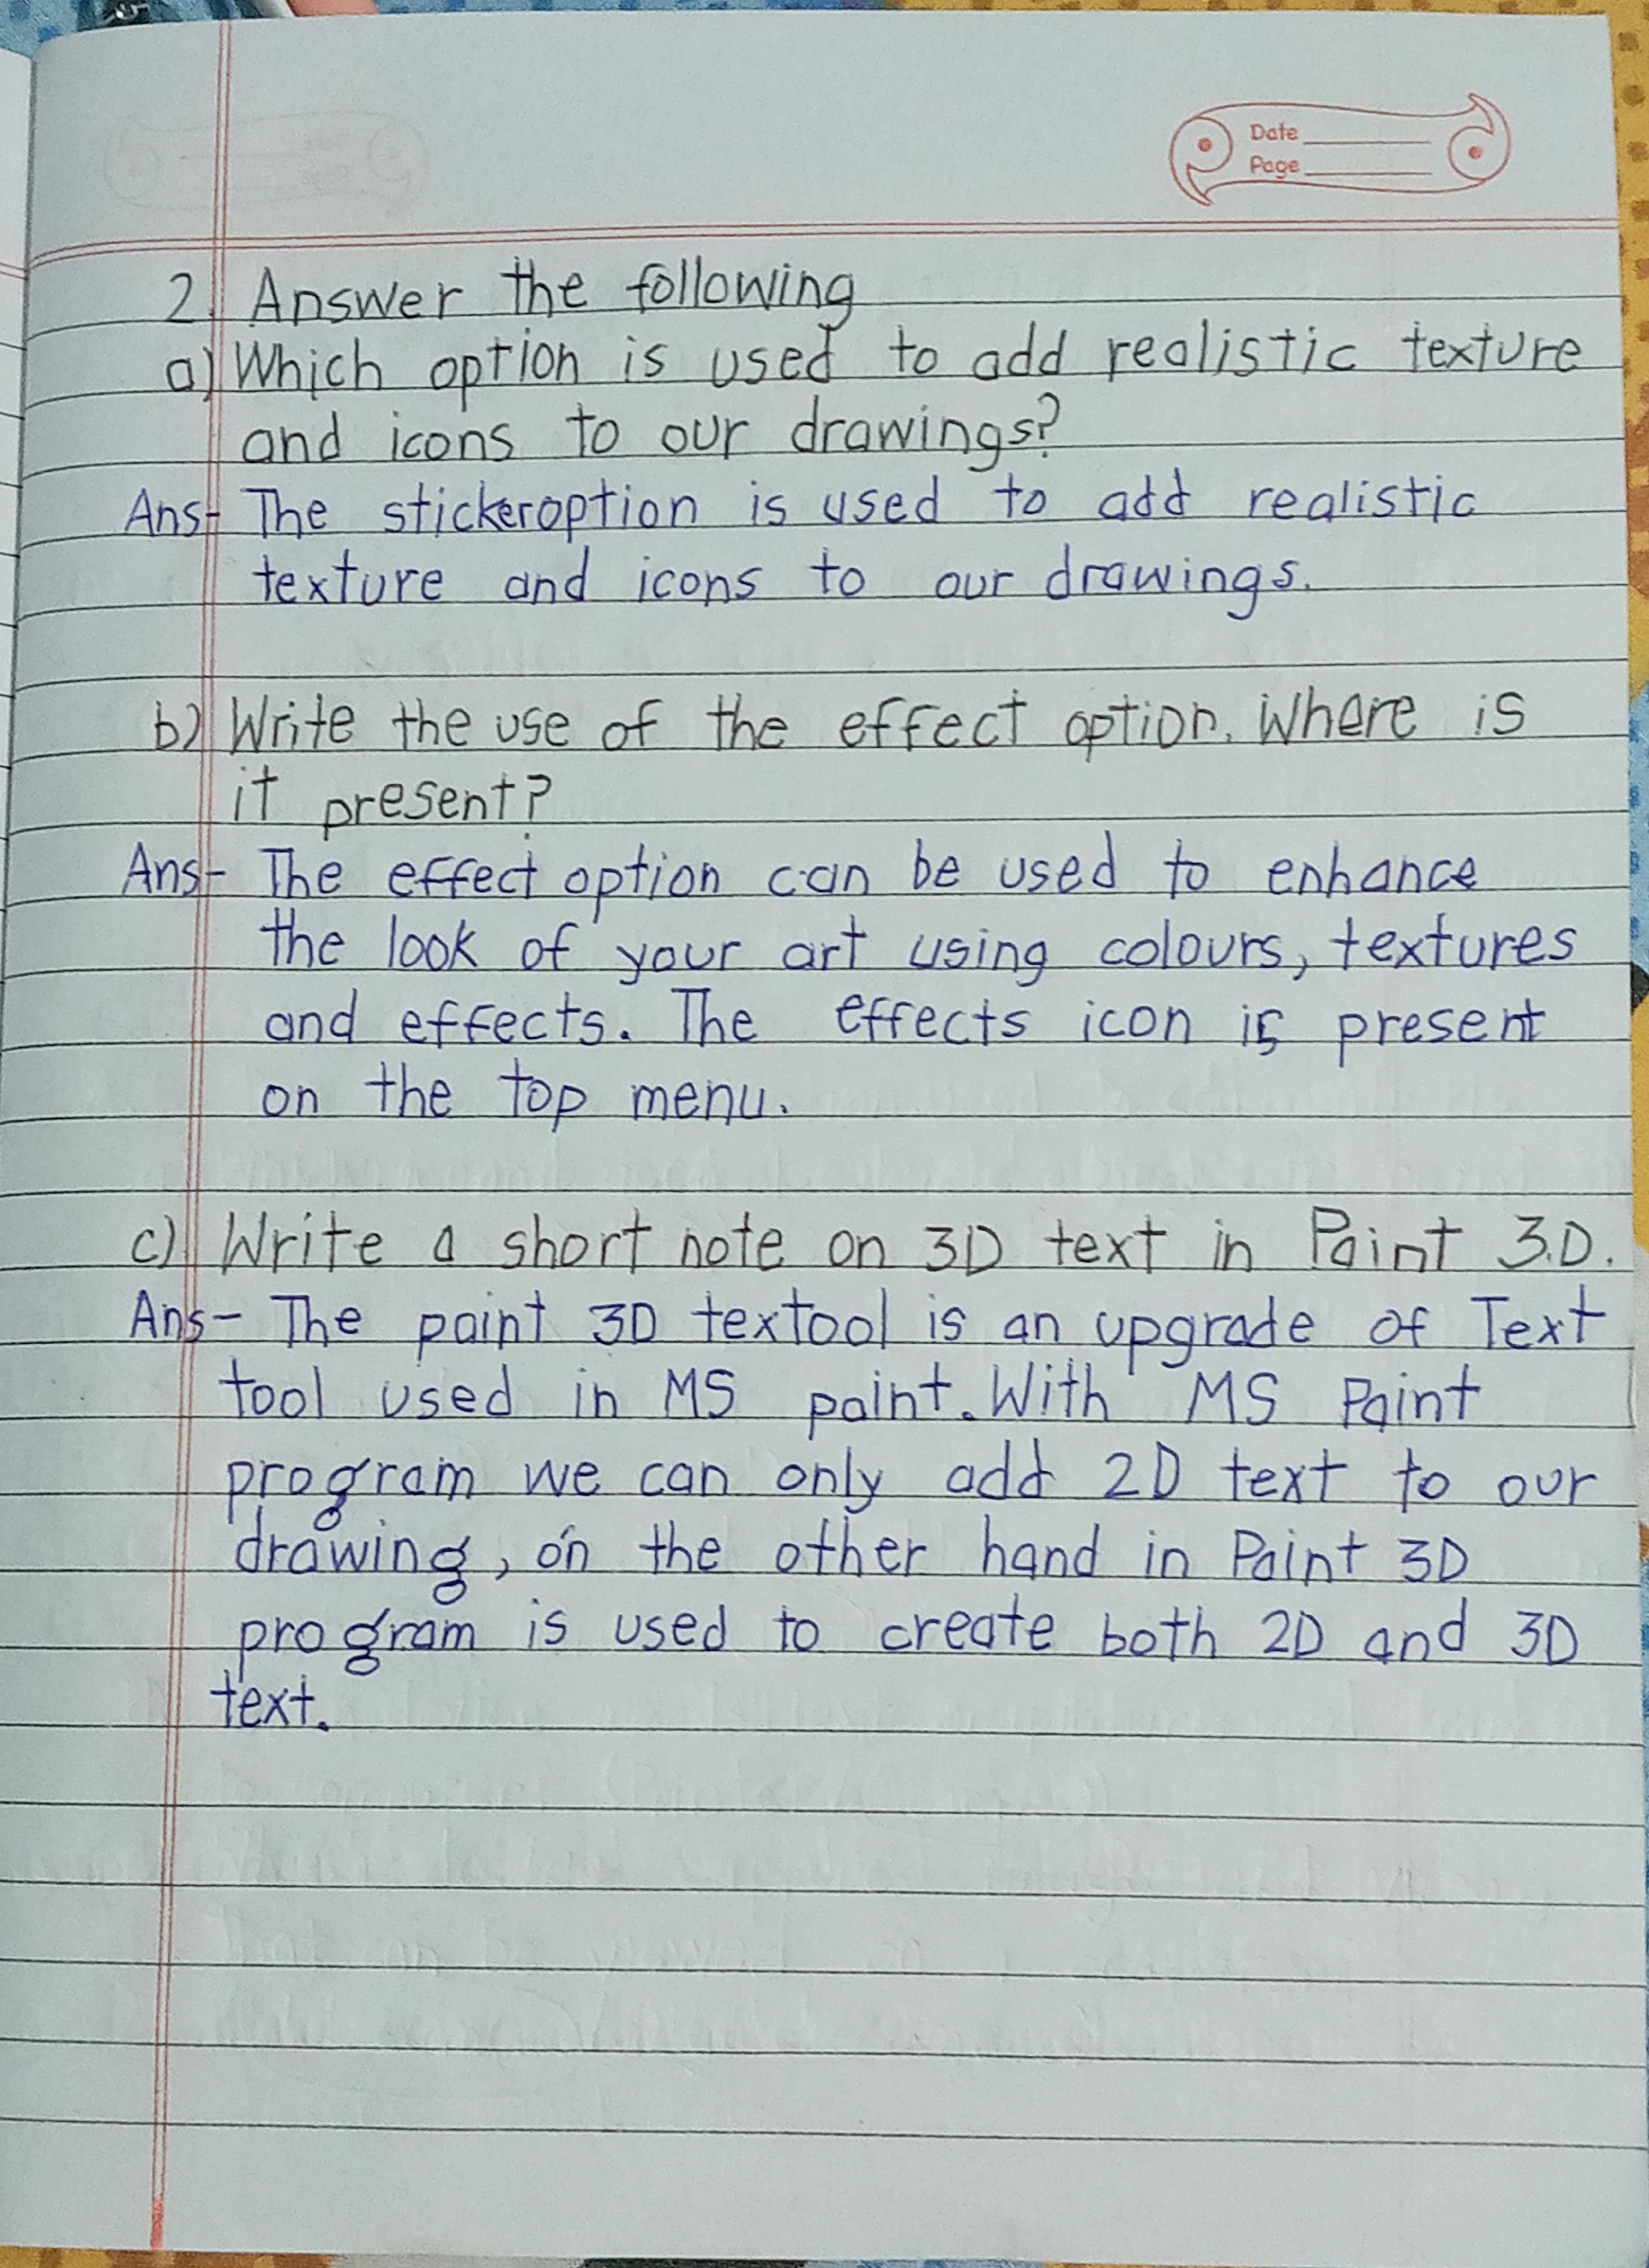 Date
Page
2. Answer the following
a) Which option is used to add realistic texture
and icons to our drawings?
Ans- The stickeroption is used to add realistic
texture and icons to our drawings.
b) Write the use of the effect option. Where is
it present?
Ans- The effect option can be used to enhance
the look of your art using colours, textures
and effects. The effects icon is present
on the top menu.
c) Write a short note on 3D text in Paint 3.D.
Ans- The paint 3D textool is an upgrade of Text
tool used in MS paint. With MS Paint
program we can only add 2D text to our
drawing, on the other hand in Paint 3D
program is used to create both 2D and 3D
text.